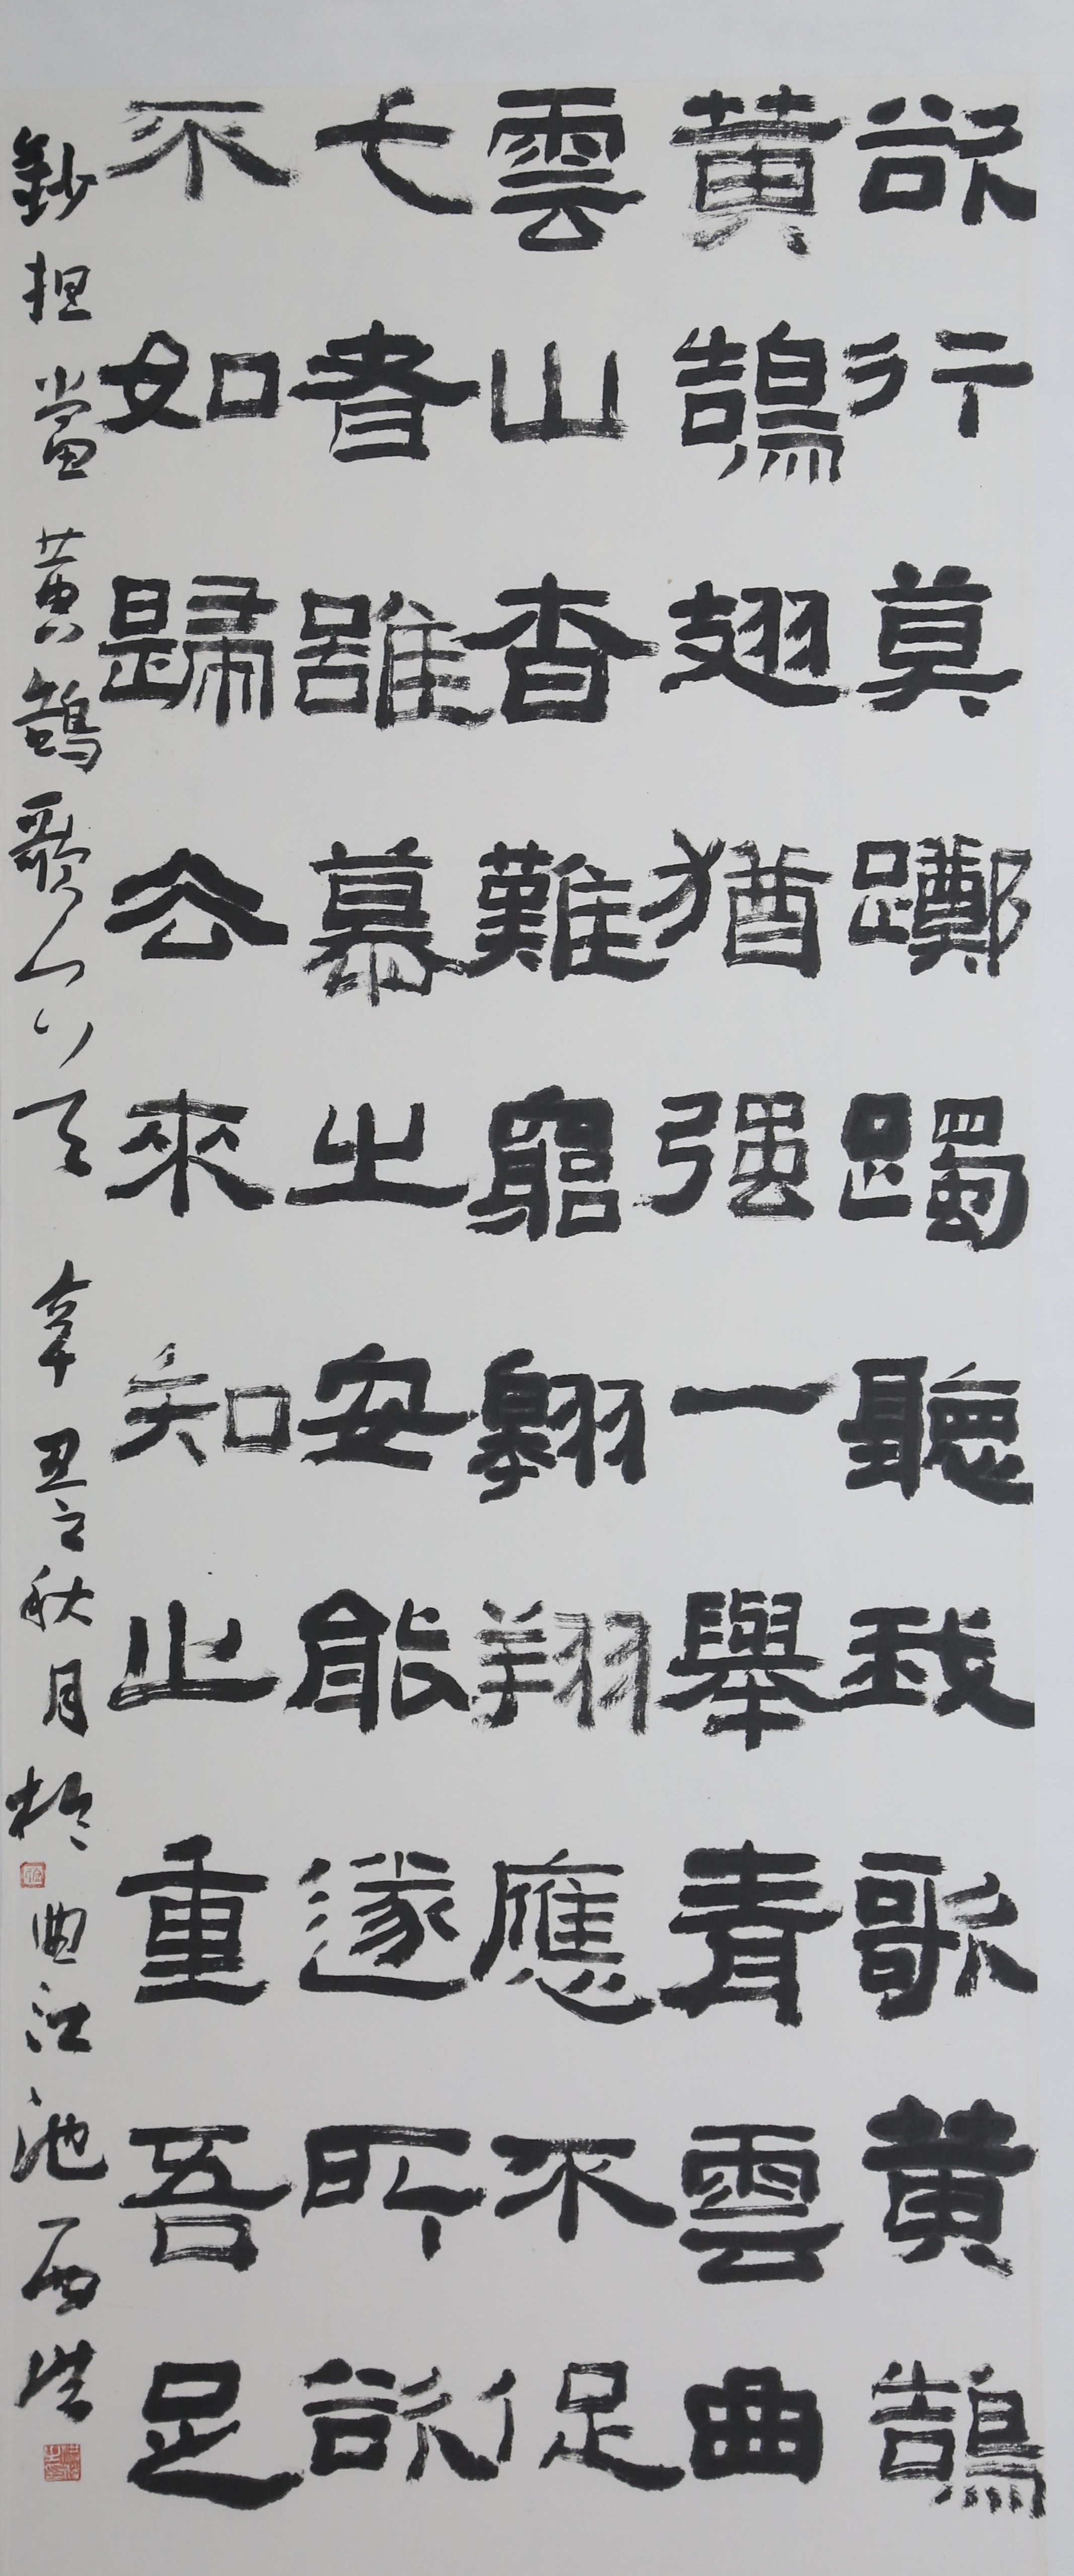 欲行莫躑躅聽我歌黄鵠
黄鵠翅猶强一舉青雲曲
雲山杳難窮翱翔應不促
弋者雖慕之安能遂所欲
不如歸去來知止重吾足
鈔担當黄鵠歌一首 辛丑之秋月於
曲江池西